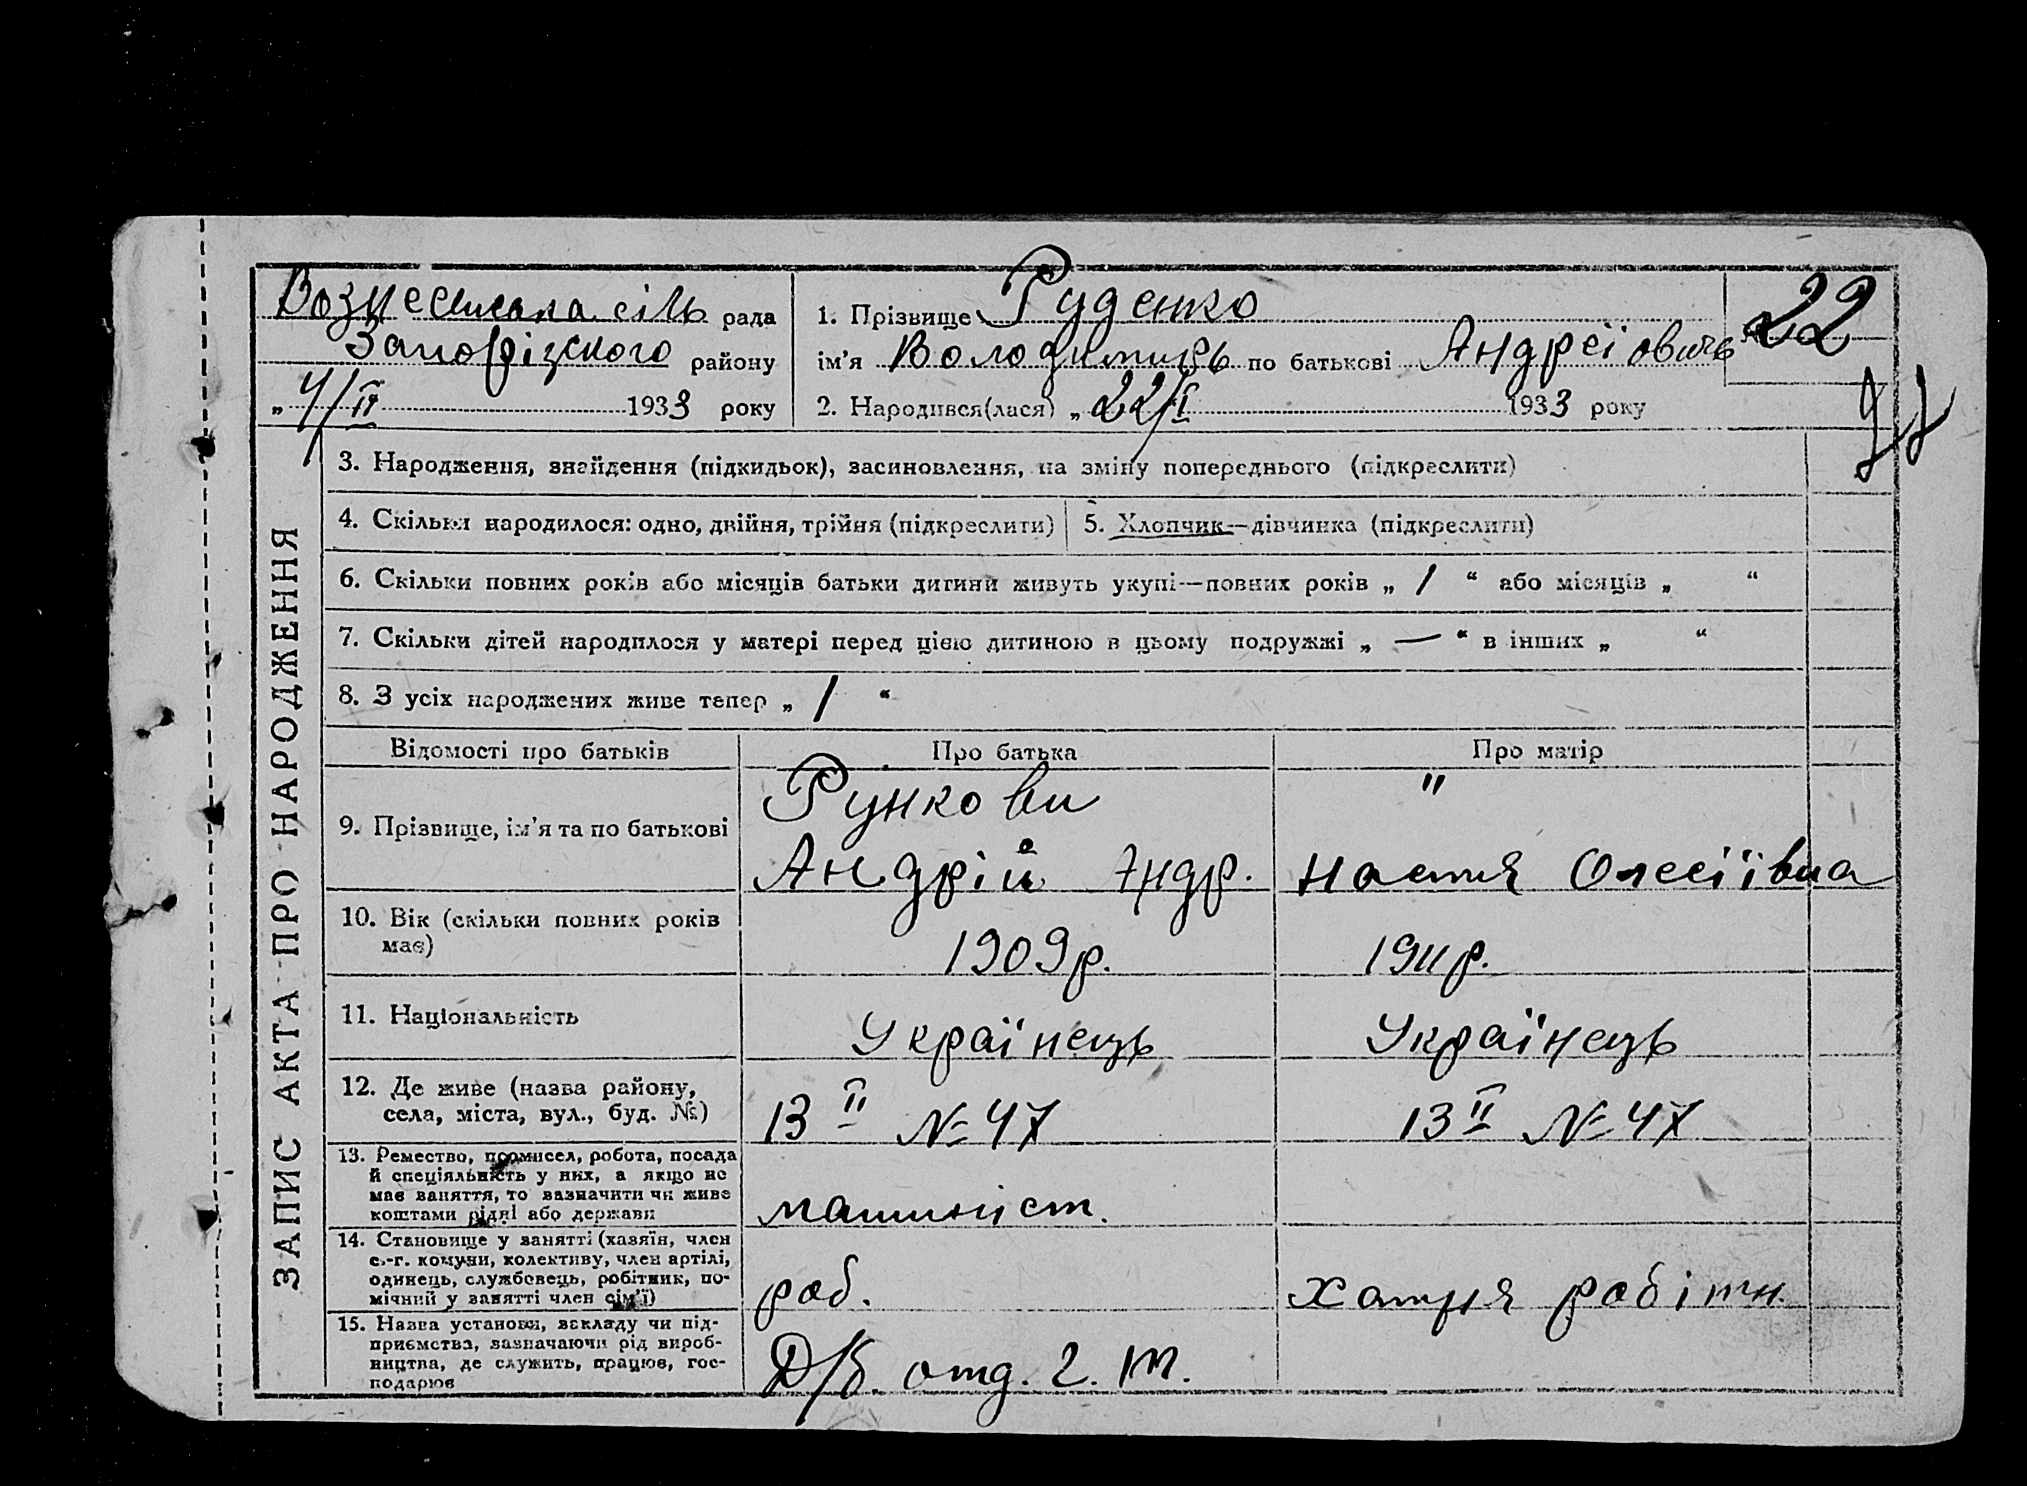 Вознесенська сіль рада
Запорізского району
„ 4/II 1933 року
1. Прізвище Руденко
ім’я Володимирь по батькові Андреїовичь
2. Народився(лася) „ 22/I 1933 року
22
ЗАПИС АКТА ПРО НАРОДЖЕННЯ
3. Народження, знайдення (підкидьок), засиновлення, на зміну попереднього (підкреслити)
4. Скільки народилося: одно, двійня, трійня (підкреслити)
5. Хлопчик—дівчинка (підкреслити)
6. Скільки повних років або місяців батьки дитини живуть укупі—повних років „ 1 “ або місяців „ “
7. Скільки дітей народилося у матері перед цією дитиною в цьому подружжі „ — “ в інших „ “
8. З усіх народжених живе тепер „ 1 “
Відомості про батьків Про батька Про матір
9. Прізвище, ім’я та по батькові
Рункови
Андрій Андр.
"
Настя Олесіївна
10. Вік (скільки повних років
має)
1909р.
1911р.
11. Національність
Українець
Українець
12. Де живе (назва району,
села, міста, вул., буд. №)
13 II № 47
13 II № 47
13. Ремество, промисел, робота, посада
й спеціяльність у них, а якщо не
має заняття, то зазначити чи живе
коштами рідні або держави
машиніст.
14. Становище у занятті (хазяїн, член
с.-г. комуни, колективу, член артілі,
одинець, службовець, робітник, по-
мічний у занятті член сім’ї)
роб.
хатня робітн.
15. Назва установи, закладу чи під-
приємства, зазначаючи рід вироб-
ництва, де служить, працює, гос-
подарює
Д/б. отд. 2. М.